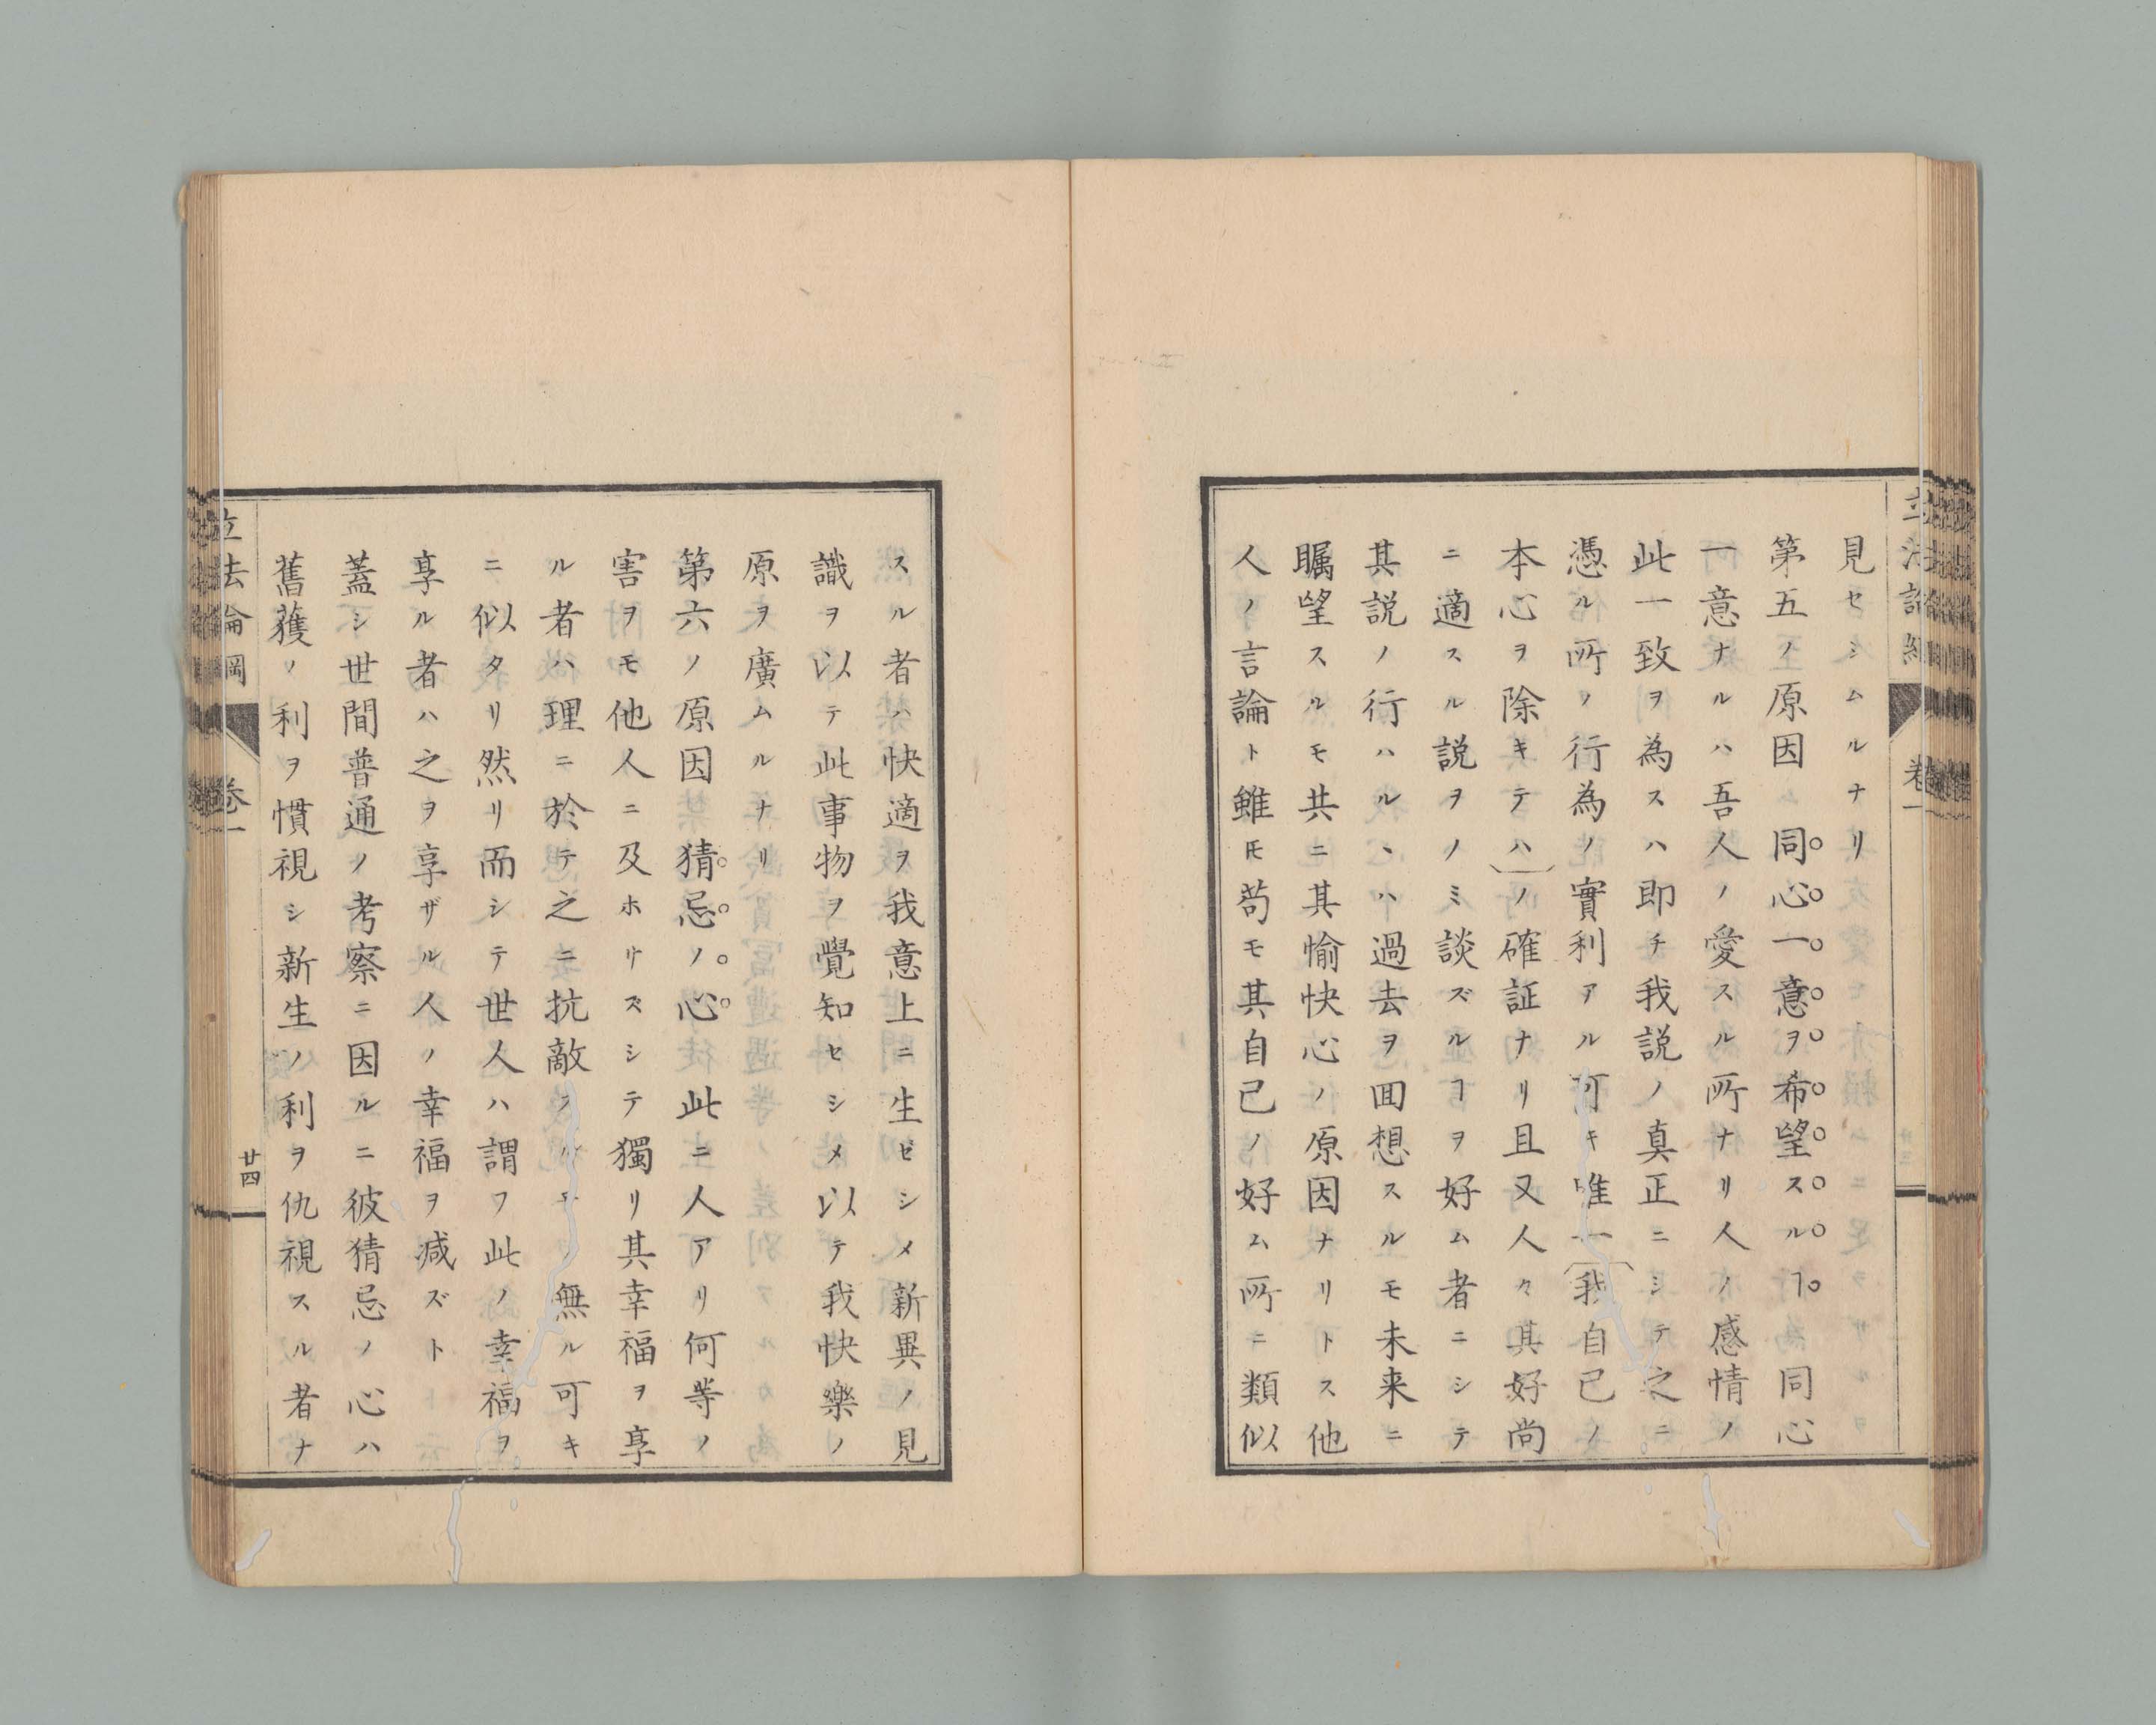 立法論綱 卷一
見セシムルナリ
第五ノ原因 同心一意ヲ希望スルヿ 同心
一意ナルハ吾人ノ愛スル所ナリ人ノ感情ノ
此一致ヲ為スハ即チ我説ノ真正ニシテ之ニ
憑ル所ノ行為ノ實利アル可キ唯一(我自己ノ
本心ヲ除キテハ)ノ確証ナリ且又人々其好尚
ニ適スル説ヲノミ談ズルヿヲ好ム者ニシテ
其説ノ行ハルヽハ過去ヲ囬想スルモ未来ニ
矚望スルモ共ニ其愉快心ノ原因ナリトス他
人ノ言論ト雖𪜈苟モ其自己ノ好ム所ニ類似
スル者ハ快適ヲ我意上ニ生ゼシメ新異ノ見
識ヲ以テ此事物ヲ覺知セシメ以テ我快樂ノ
原ヲ廣ムルナリ
第六ノ原因 猜忌ノ心 此ニ人アリ何等ノ
害ヲモ他人ニ及ホサズシテ獨リ其幸福ヲ享
ル者ハ理ニ於テ之ニ抗敵スルモノ無ル可キ
ニ似タリ然リ而シテ世人ハ謂フ此ノ幸福ヲ
享ル者ハ之ヲ享ザル人ノ幸福ヲ减ズト
蓋シ世間普通ノ考察ニ因ルニ彼猜忌ノ心ハ
舊獲ノ利ヲ慣視シ新生ノ利ヲ仇視スル者ナ
立法論綱 卷一 廿四